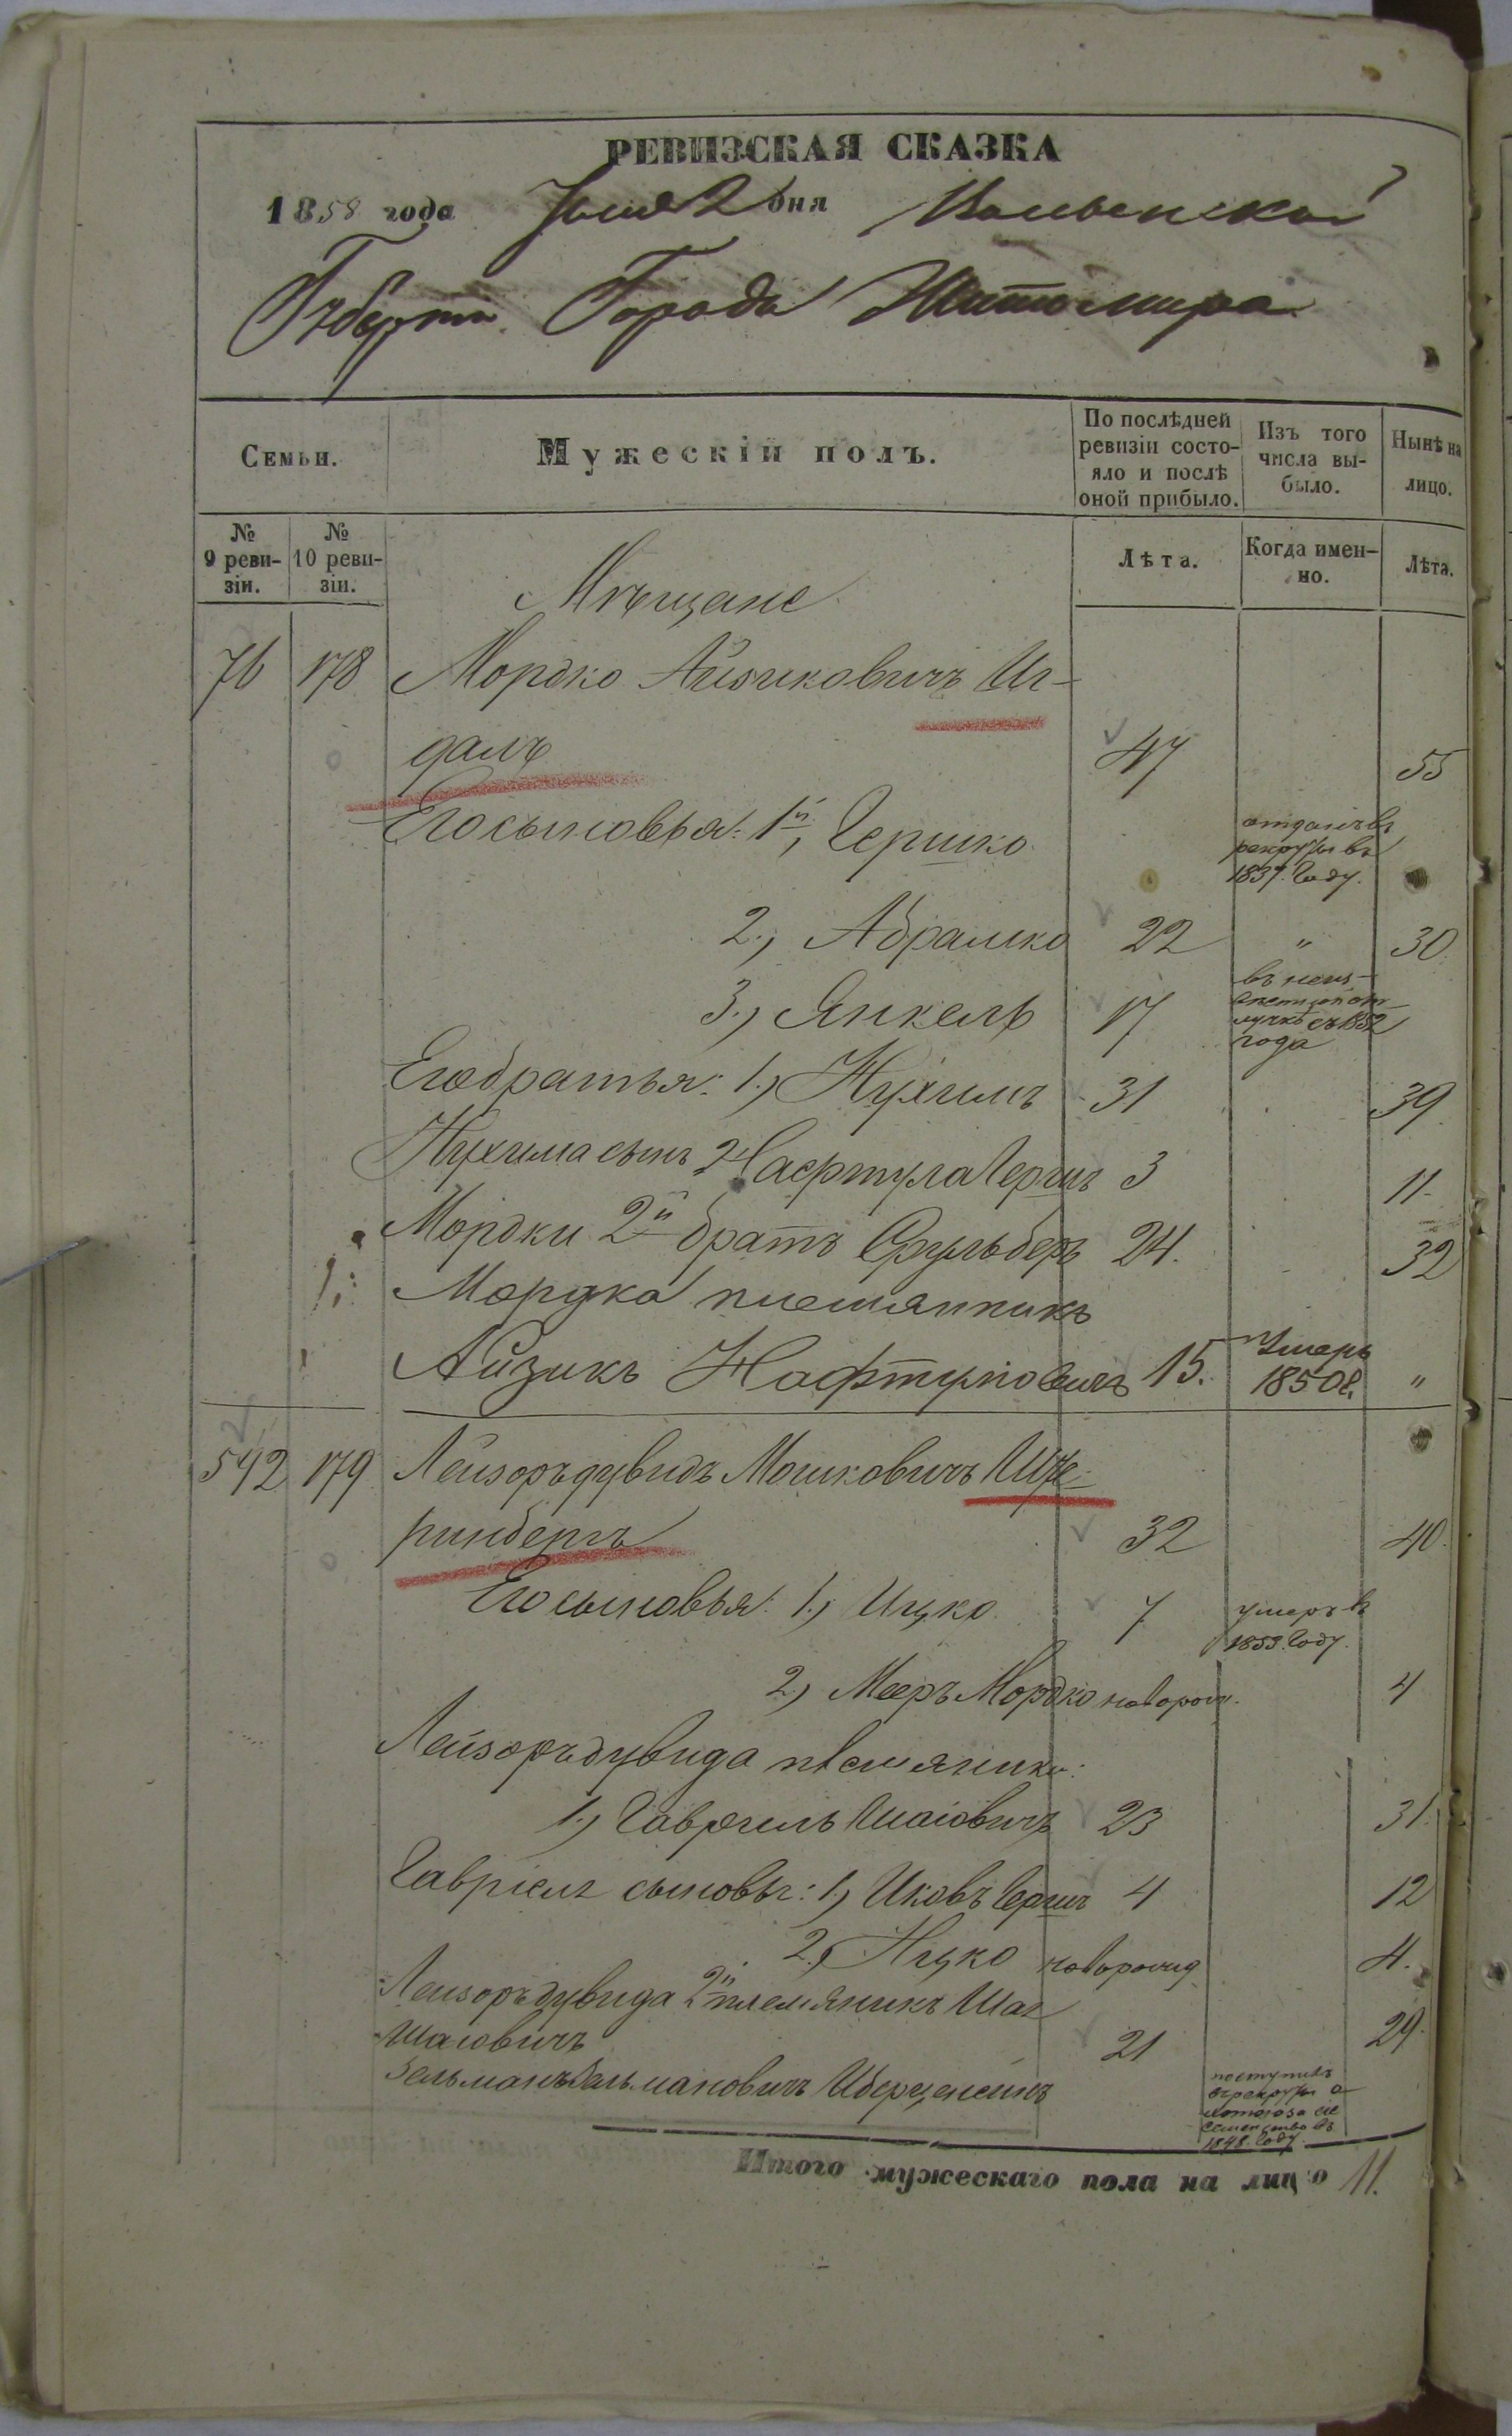 РЕВИЗСКАЯ СКАЗКА
1858 года Июня 2 дня Волынской
Губерніи Города Житомира
Семьи.
Мужескій полъ.
По послѣдней
ревизіи состо-
яло и послѣ
оной прибыло.
Изъ того
числа вы-
было.
Нынѣ на
лицо.
№
9 реви-
зіи.
№
10 реви-
зіи.
Лѣта.
Когда имен-
но.
Лѣта.
Мѣщане
76 178 Мордко Айзиковичъ Иг-
далъ 47 55
Его сыновья: 1й, Гершко
отданъ въ
рекруты въ
1837. Году.
2, Абрамко 22 " 30
3, Янкель 17
въ неиз-
вестной от
лучкѣ съ 1852
года
Его братья: 1, Нухимъ 31 39
Нухима сынъ Нафтула Гершъ 3 11
Мордки 2й братъ Сруль беръ 24. 32
Мордка племянникъ
Айзикъ Нафтуловичъ 15. Умеръ
1850 г. "
592 179 Лейзоръ дувидъ Мошковичъ
ринбергъ 32 40
Его сыновья: 1, Ицко 7 умеръ въ
1853. Году.
2, Меер Мордконоворож. 4
Лейзоръ дувида племяники:
1, Гавріель Шаіовичъ 23 31.
Гавріеля сыновья: 1, Гершъ 4 12
2, Ицко новорожд 4.
Лейзоръ дувида 2й племяникъ Шая
Шаіовичъ 21 29
Зельманъ Зельмановичъ
поступилъ
въ рекруты
сіе
семейство въ
1848. Году.
Итого мужескаго пола на лицо 11.